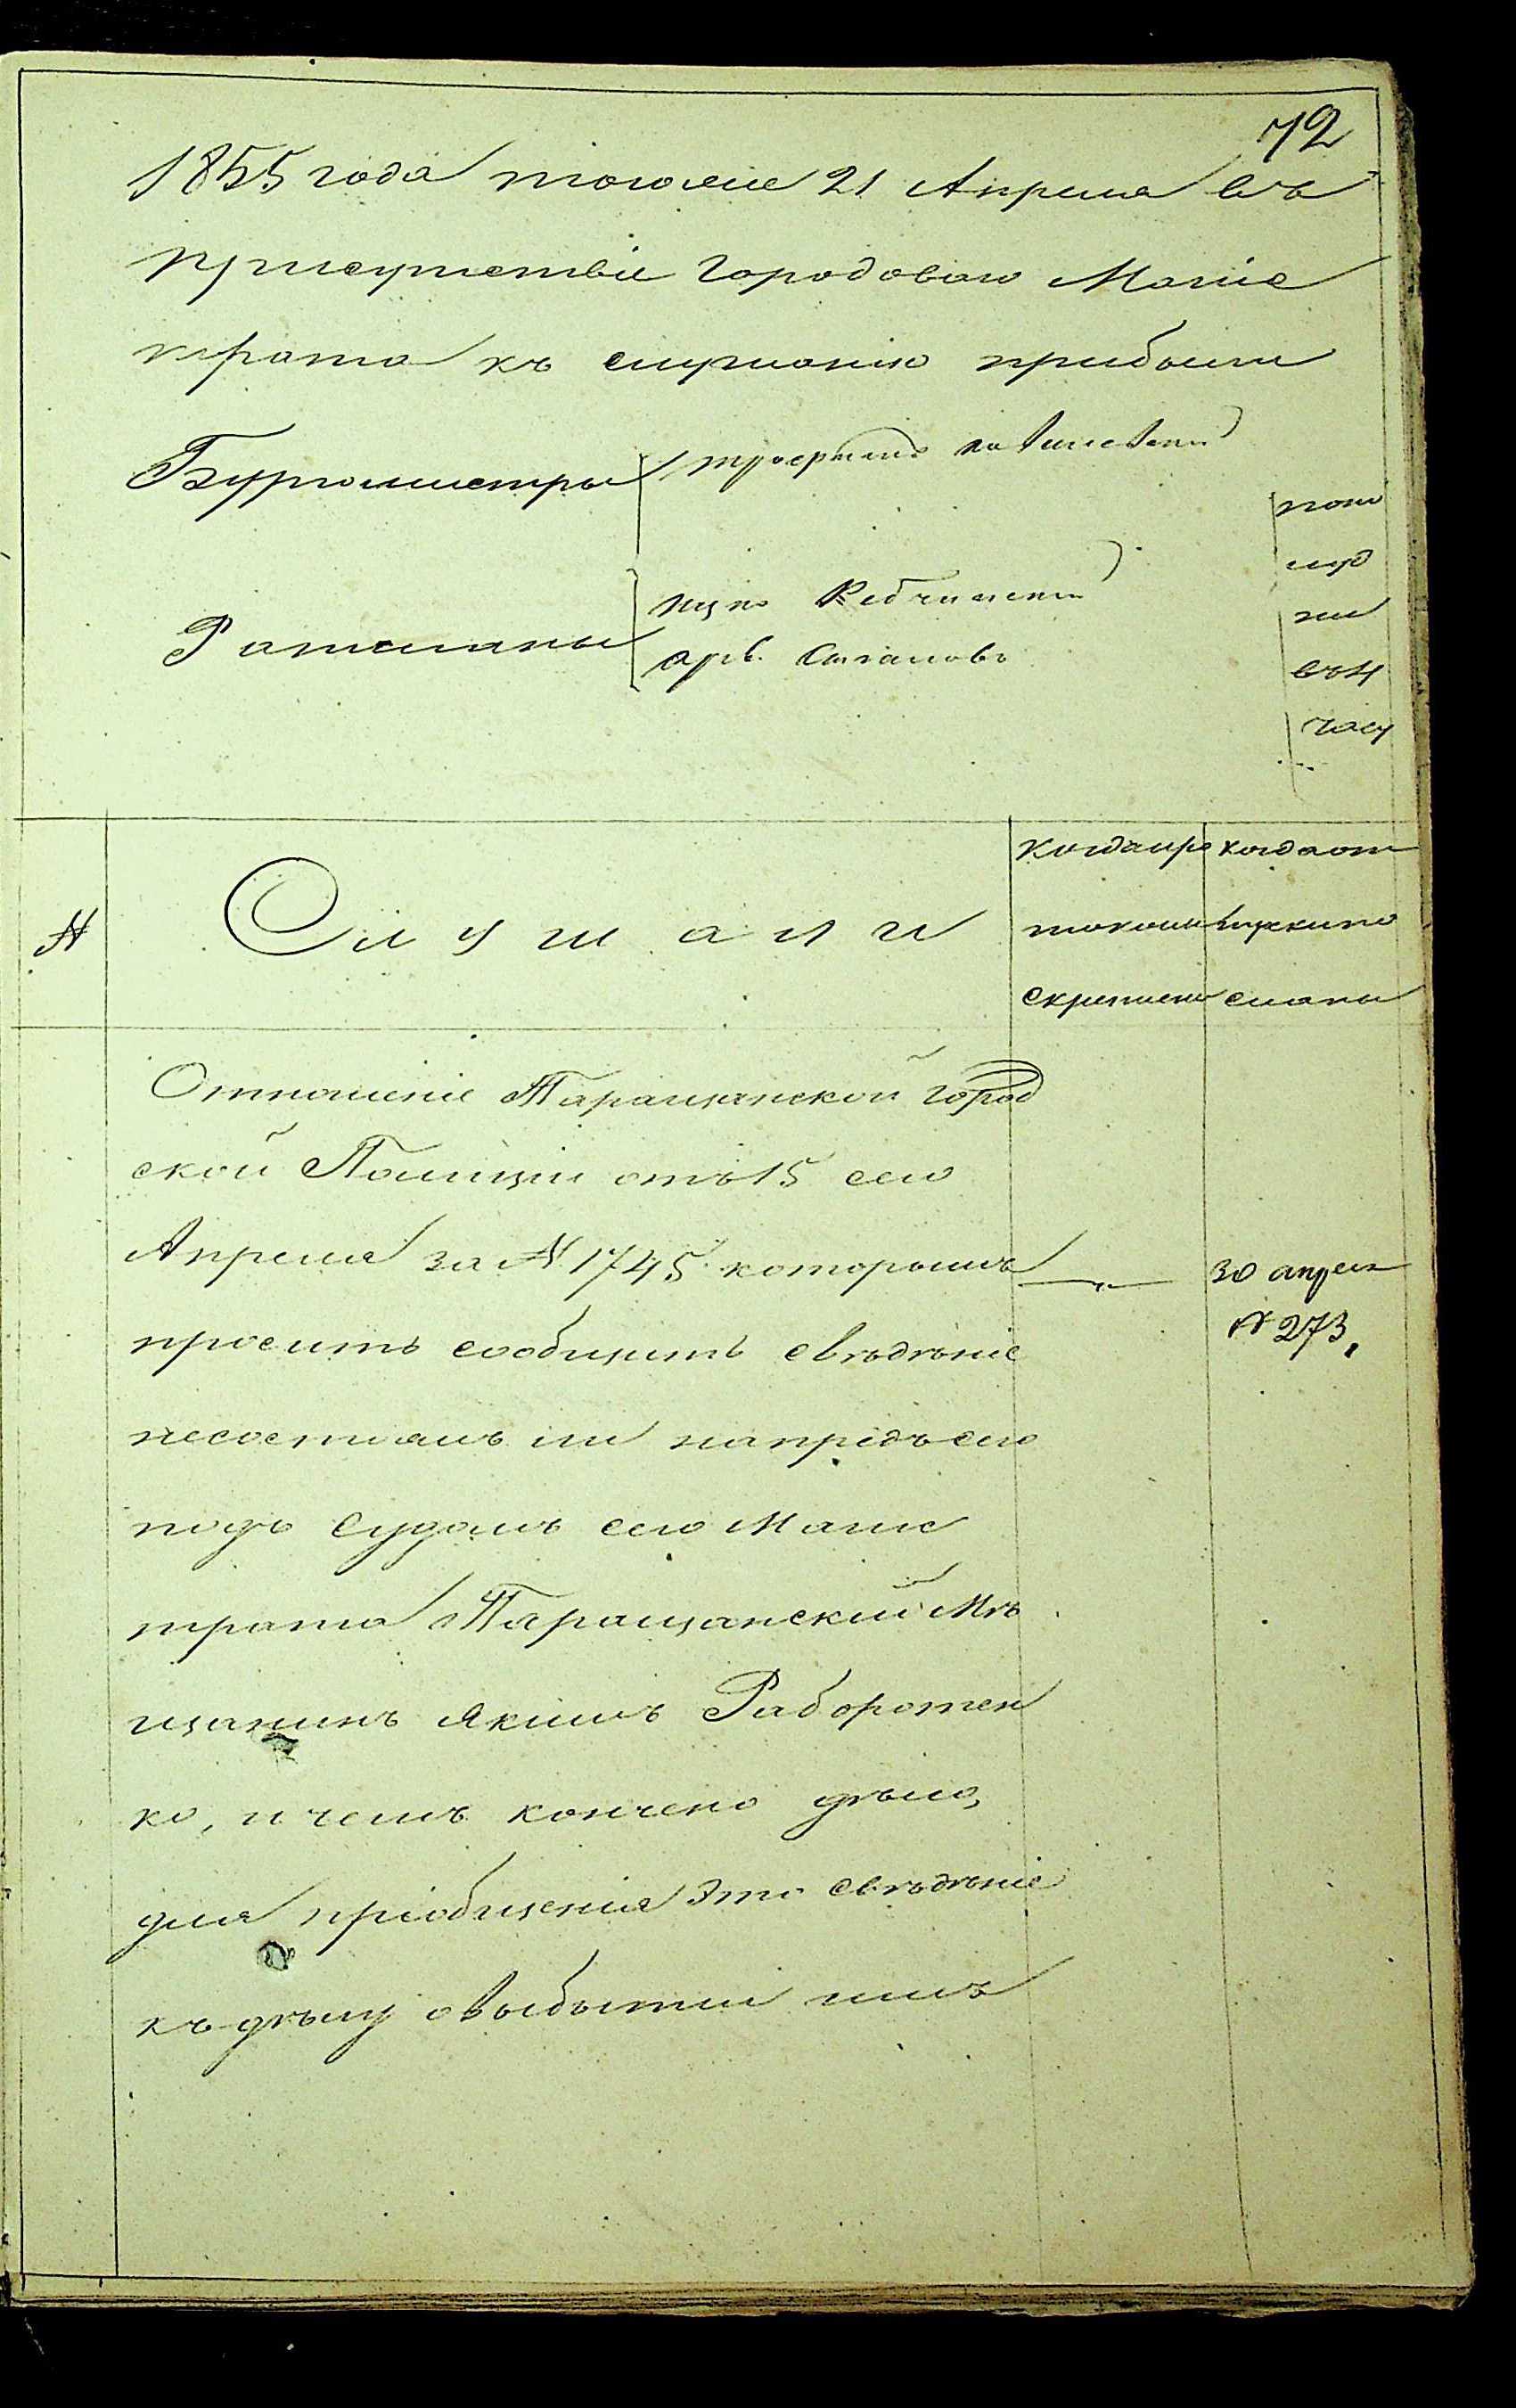 72
1855 года тогоже 21 Апреля въ
присуствіе Городоваго Магис
трата къ слушанію прибыли
Бургомистры
по полу
дни
въ 4
часу
Ратманы
№
Слушали
когда про
токолъ
скрепленъ
когда от
пуски по
сланы
Отношеніе Таращанской Город
ской Полиціи отъ 15 сего
Апреля за № 1745 которымъ
30 апреля
№ 273.
проситъ сообщить свѣдѣніе
несостоялъ ли напредъ сего
подъ судомъ сего Магис
трата Таращанскій Мѣ
щанинъ Якимъ Раборотен
ко, и чемъ кончено дѣло,
для пріобщенія Это свѣдѣніе
къ дѣлу о выбытіи имъ